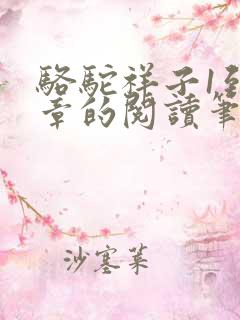 駱駝祥子1至
章的閱讀筆
沙塞菜